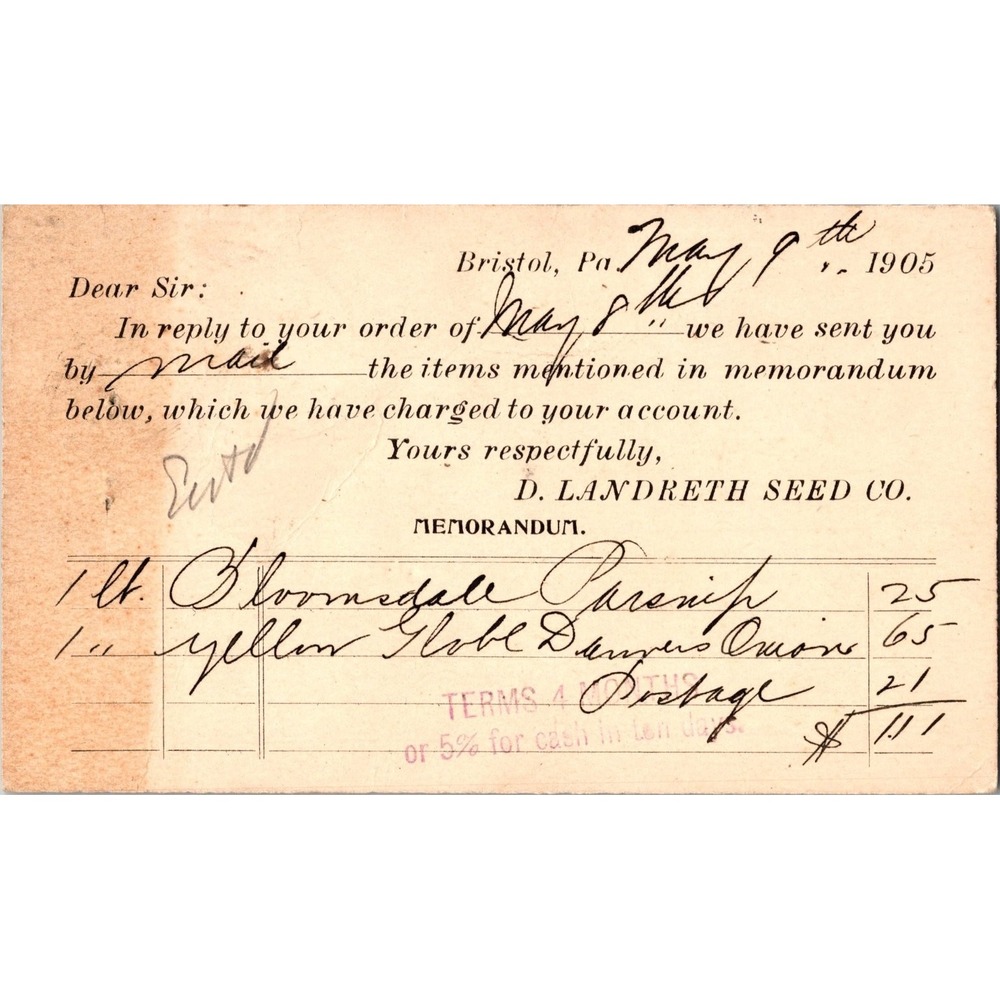 Bristol, Pa. May 9th 1905
Dear Sir:
In reply to your order of May 8th we have sent you
by mail the items mentioned in memorandum
below, which we have charged to your account.
Yours respectfully,
D. LANDRETH SEED CO.
MEMORANDUM.
1 lb. Bloomsdale Parsnip 25
1 " Yellow Globe Danvers Onion 65
Postage 21
$ 1.11
TERMS 4 MONTHS
or 5% for cash in ten days.